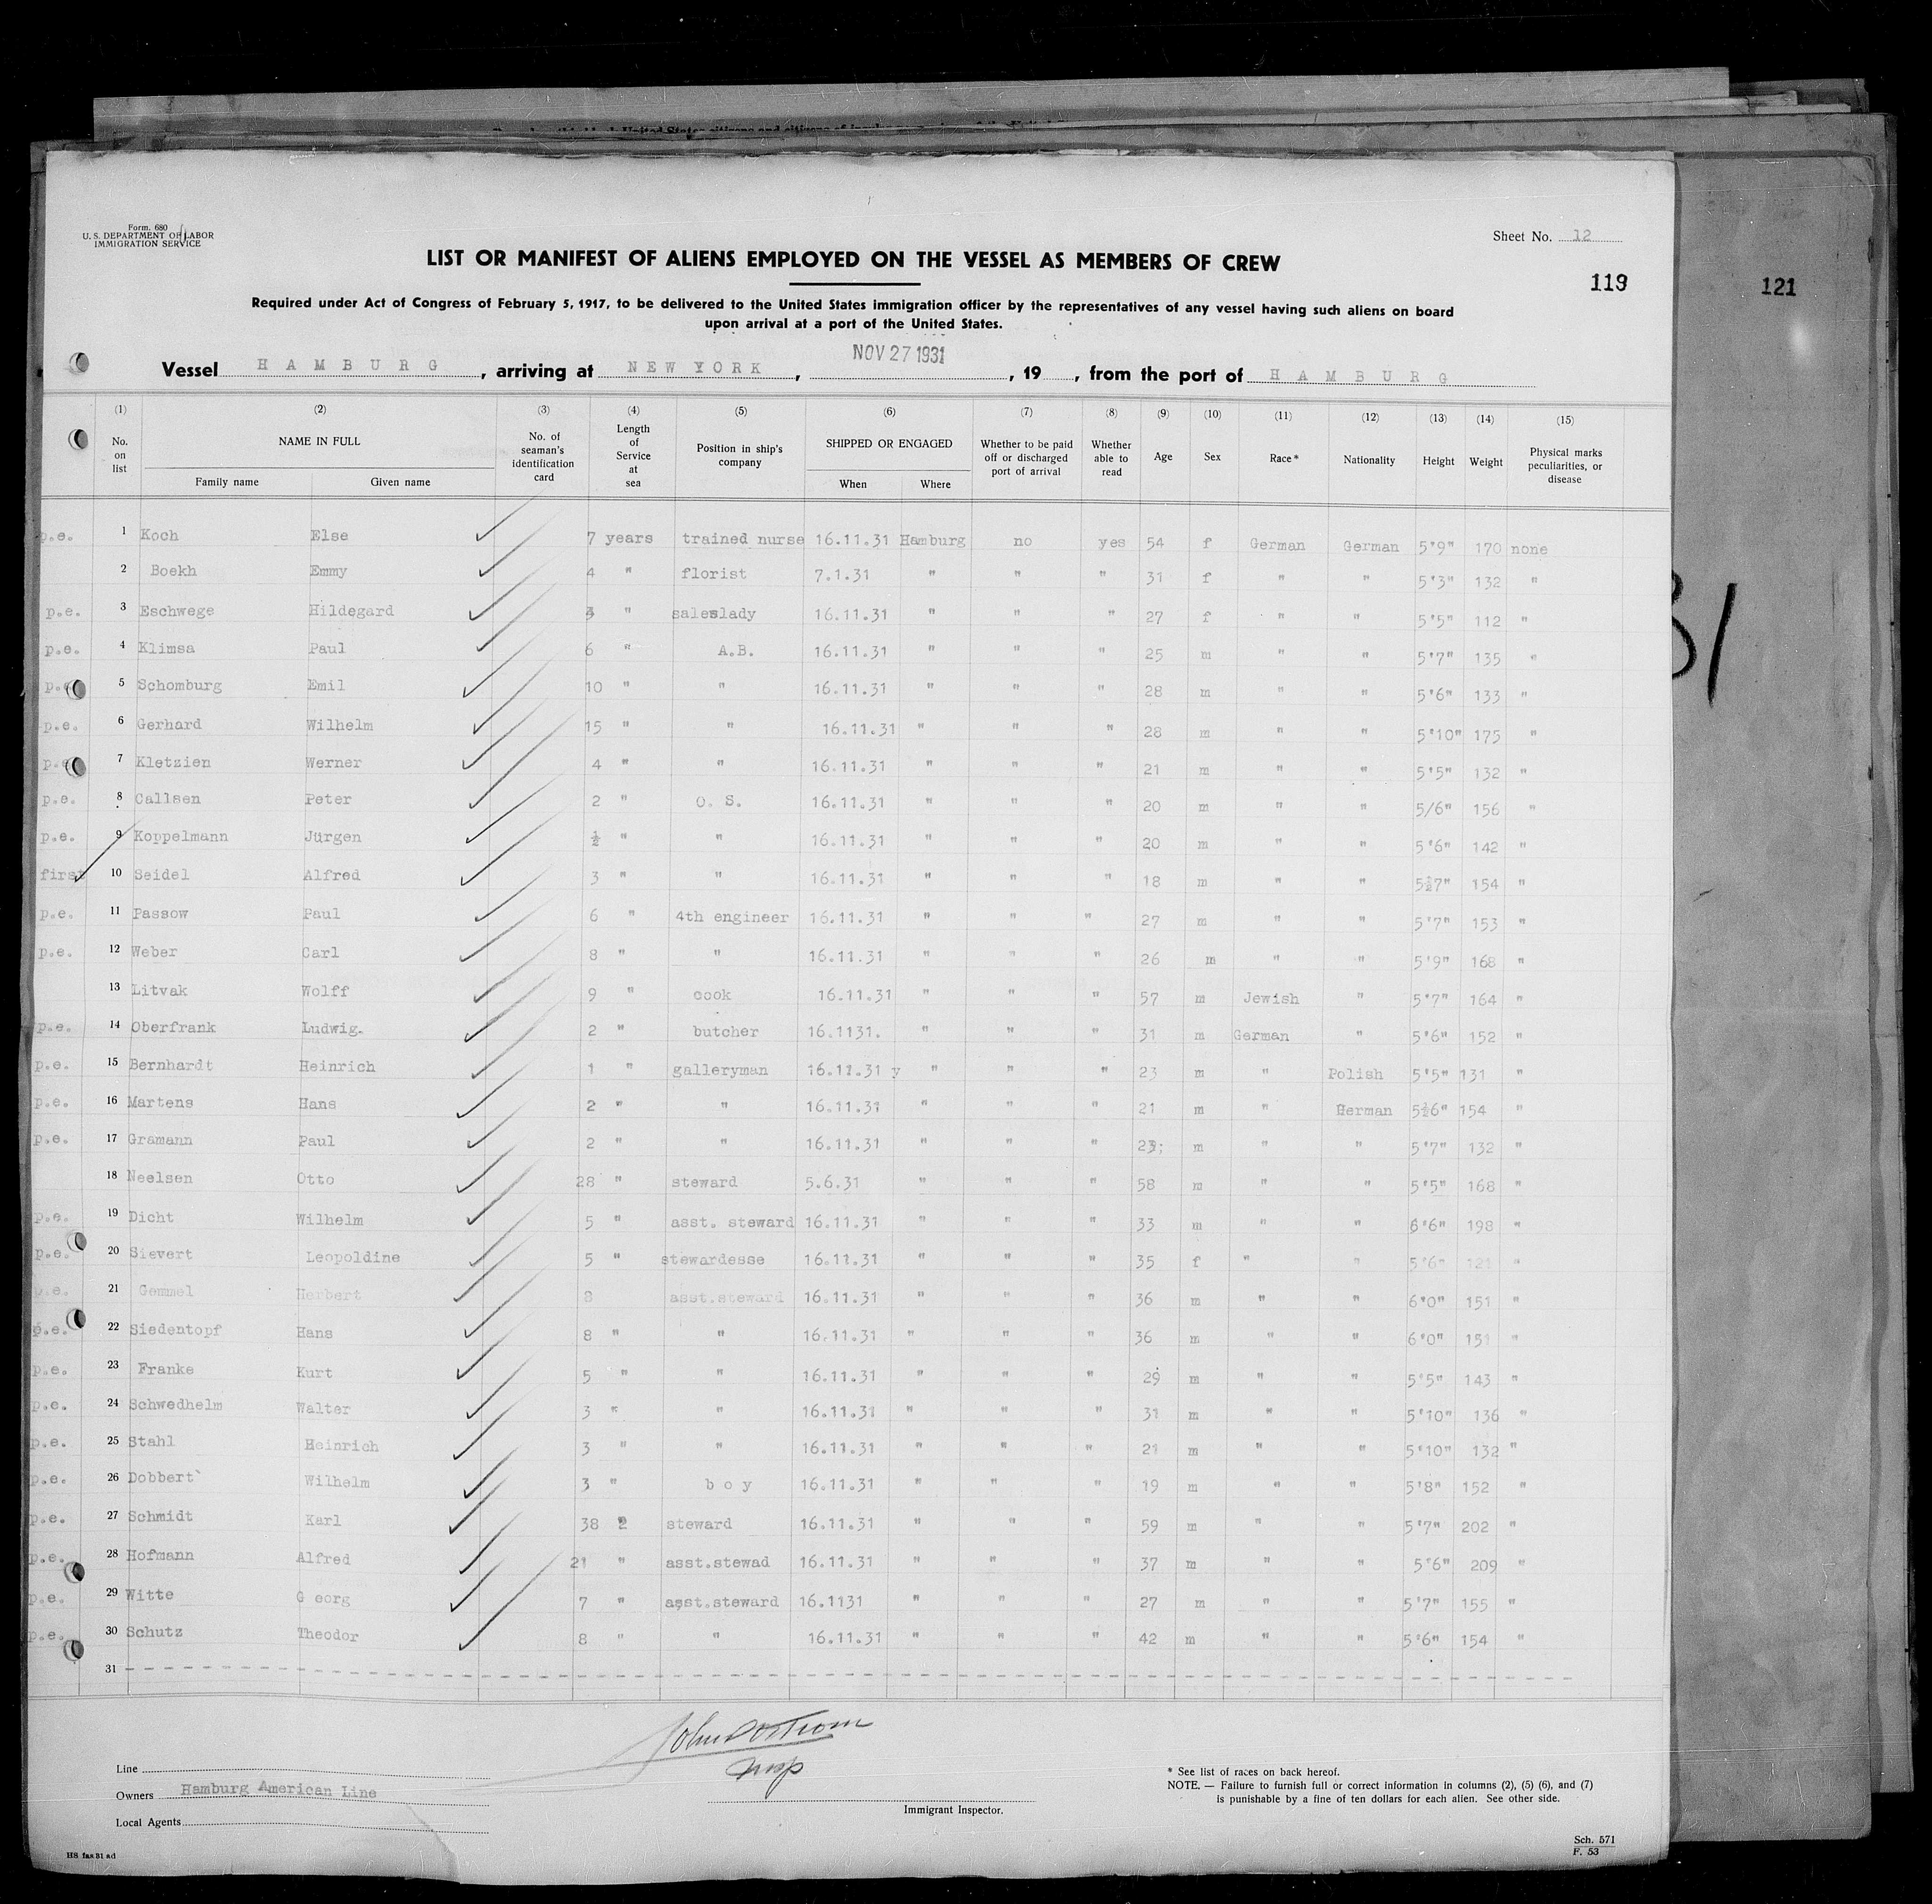 Form. 680
U. S. DEPARTMENT OF LABOR
IMMIGRATION SERVICE
Sheet No. 12
LIST OR MANIFEST OF ALIENS EMPLOYED ON THE VESSEL AS MEMBERS OF CREW
119
121
Required under Act of Congress of February 5, 1917, to be delivered to the United States immigration officer by the representatives of any vessel having such aliens on board
upon arrival at a port of the United States.
NOV 27 1931
Vessel HAMBURG, arriving at NEW YORK, , 19 , from the port of HAMBURG
(1) (2) (3) (4) (5) (6) (7) (8) (9) (10) (11) (12) (13) (14) (15)
No. on list NAME IN FULL Family name Given name No. of seaman's identification card Length of Service at sea Position in ship's company SHIPPED OR ENGAGED When Where Whether to be paid off or discharged port of arrival Whether able to read Age Sex Race* Nationality Height Weight Physical marks peculiarities, or disease
p.e. 1 Koch Else 7 years trained nurse 16.11.31 Hamburg no yes 54 f German German 5'9" 170 none
2 Boekh Emmy 4 " florist 7.1.31 " " " 31 f " " 5'3" 132 "
p.e. 3 Eschwege Hildegard " saleslady 16.11.31 " " " 27 f " " 5'5" 112 "
p.e. 4 Klimsa Paul 6 " A.B. 16.11.31 " " " 25 m " " 5'7" 135 "
p.e. 5 Schomburg Emil 10 " " 16.11.31 " " " 28 m " " 5'6" 133 "
p.e. 6 Gerhard Wilhelm 15 " " 16.11.31 " " " 28 m " " 5'10" 175 "
p.e. 7 Kletzien Werner 4 " " 16.11.31 " " " 21 m " " 5'5" 132 "
p.e. 8 Callsen Peter 2 " O. S. 16.11.31 " " " 20 m " " 5/6" 156 "
p.e. 9 Koppelmann Jürgen ½ " " 16.11.31 " " " 20 m " " 5'6" 142 "
first 10 Seidel Alfred 3 " " 16.11.31 " " " 18 m " " 5½7" 154 "
p.e. 11 Passow Paul 6 " 4th engineer 16.11.31 " " " 27 m " " 5'7" 153 "
p.e. 12 Weber Carl 8 " " 16.11.31 " " " 26 m " " 5'9" 168 "
13 Litvak Wolff 9 " cook 16.11.31 " " " 57 m Jewish " 5'7" 164 "
p.e. 14 Oberfrank Ludwig. 2 " butcher 16.1131. " " " 31 m German " 5'6" 152 "
p.e. 15 Bernhardt Heinrich 1 " galleryman 16.11.31 y " " " 23 m " Polish 5'5" 131 "
p.e. 16 Martens Hans 2 " " 16.11.31 " " " 21 m " German 5½6" 154 "
p.e. 17 Gramann Paul 2 " " 16.11.31 " " " 23; m " " 5'7" 132 "
18 Neelsen Otto 28 " steward 5.6.31 " " " 58 m " " 5'5" 168 "
p.e. 19 Dicht Wilhelm 5 " asst. steward 16.11.31 " " " 33 m " " 6'6" 198 "
p.e. 20 Sievert Leopoldine 5 " stewardesse 16.11.31 " " " 35 f " " 5'6" 121 "
p.e. 21 Gemmel Herbert 8 asst.steward 16.11.31 " " " 36 m " " 6'0" 151 "
p.e. 22 Siedentopf Hans 8 " " 16.11.31 " " " 36 m " " 6'0" 151 "
p.e. 23 Franke Kurt 5 " " 16.11.31 " " " 29 m " " 5'5" 143 "
p.e. 24 Schwedhelm Walter 3 " " 16.11.31 " " " 31 m " " 5'10" 136 "
p.e. 25 Stahl Heinrich 3 " " 16.11.31 " " " 21 m " " 5'10" 132 "
p.e. 26 Dobbert Wilhelm 3 " boy 16.11.31 " " " 19 m " " 5'8" 152 "
p.e. 27 Schmidt Karl 38 2 steward 16.11.31 " " " 59 m " " 5'7" 202 "
p.e. 28 Hofmann Alfred 21 " asst.stewad 16.11.31 " " " 37 m " " 5'6" 209 "
p.e. 29 Witte G eorg 7 " asst.steward 16.1131 " " " 27 m " " 5'7" 155 "
p.e. 30 Schutz Theodor 8 " " 16.11.31 " " " 42 m " " 5'6" 154 "
31
Line
Owners Hamburg American Line
Local Agents
Insp
Immigrant Inspector.
* See list of races on back hereof.
NOTE. — Failure to furnish full or correct information in columns (2), (5) (6), and (7)
is punishable by a fine of ten dollars for each alien. See other side.
HS faa 31 ad
Sch. 571
F. 53